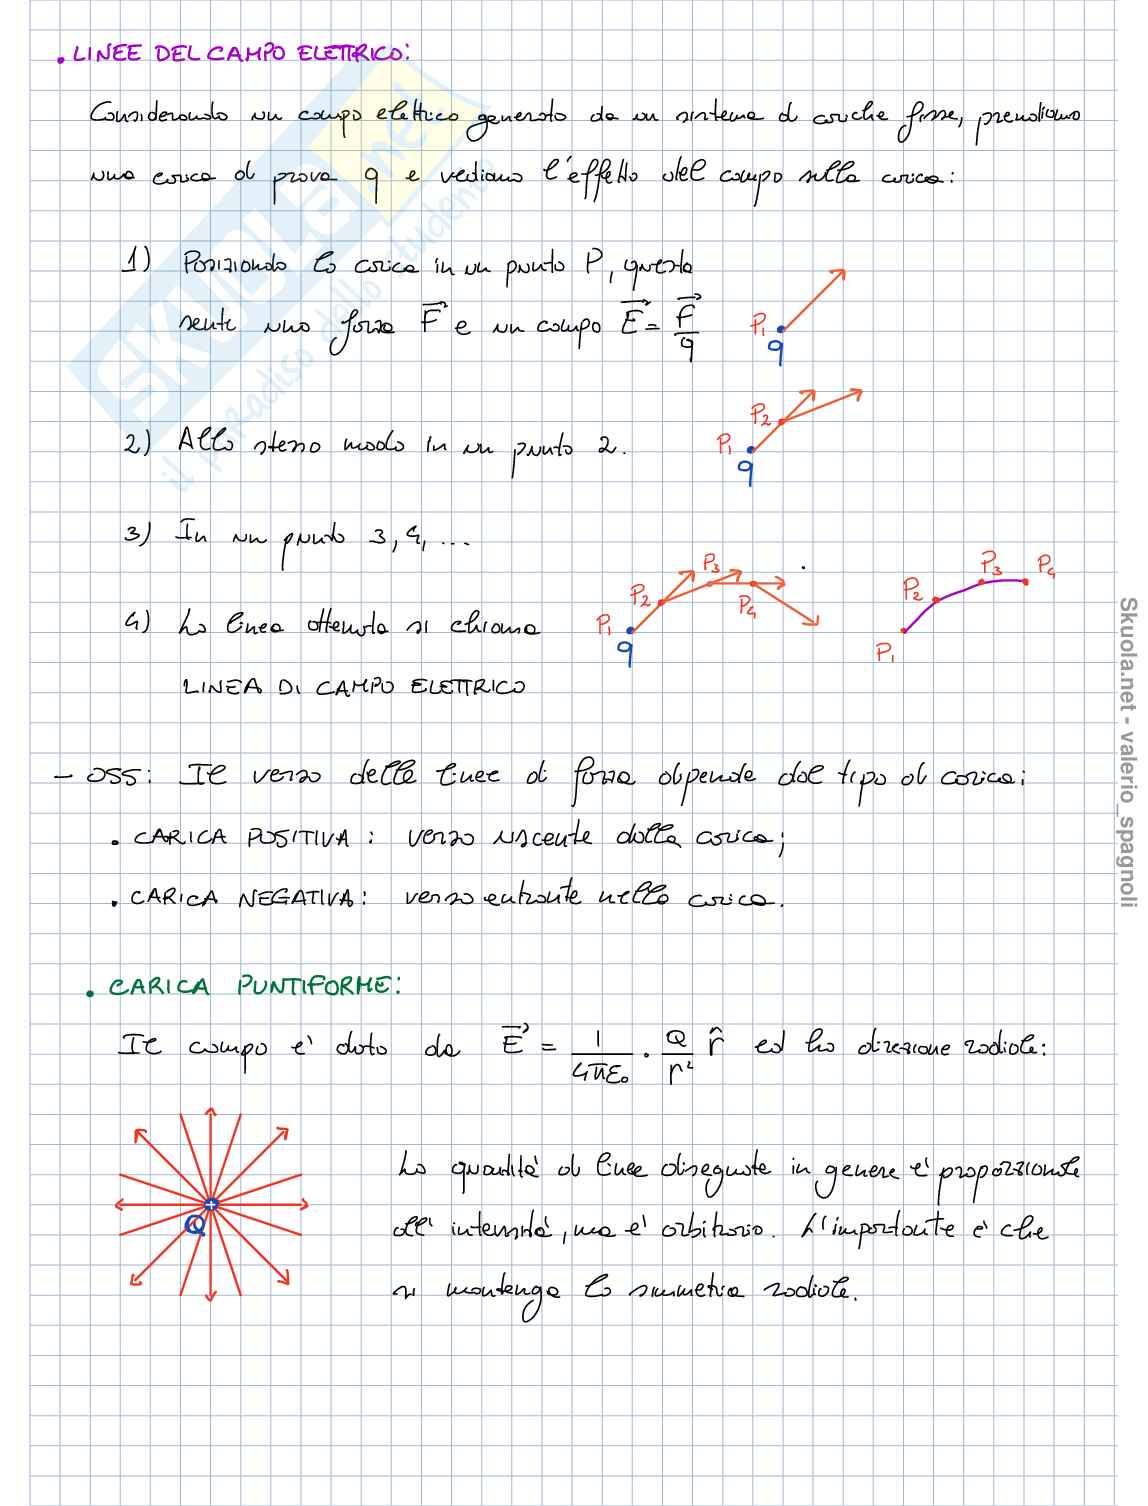 . LINEE DEL CAMPO ELETTRICO:
Considerando un campo elettrico generato da un sistema di cariche fisse, prendiamo
una carica di prova q e vediamo l'effetto del campo sulla carica:
1) Posizionando la carica in un punto P, questa
sente una forza F⃗ e un campo E⃗ = F⃗/q
P₁
q
2) Allo stesso modo in un punto 2.
P₂
P₁
q
3) In un punto 3, 4, ...
4) La linea ottenuta si chiama
LINEA DI CAMPO ELETTRICO
P₁ P₂ P₃ P₄
q
P₁ P₂ P₃ P₄
- OSS: Il verso delle linee di forza dipende dal tipo di carica:
. CARICA POSITIVA: verso uscente dalla carica;
. CARICA NEGATIVA: verso entrante nella carica.
. CARICA PUNTIFORME:
Il campo è dato da E⃗ = 1/4πε₀ · Q/r² r̂ ed ha direzione radiale:
+
Q
La quantità di linee disegnate in genere è proporzionale
all'intensità, ma è arbitrario. L'importante è che
si mantenga la simmetria radiale.
SKUOLA.net
il paradiso dello studente
Skuola.net - valerio_spagnoli